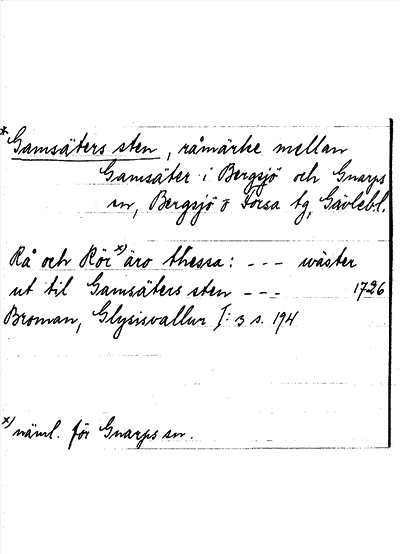 *Gamsäters sten, råmärke mellan
Gamsäter i Bergsjö och Gnarps
sn, Bergsjö o Forsa tg, Gävlebl.
Rå och Rör x) äro thessa: --- wäster
ut til Gamsäters sten --- 1726
Broman, Glysisvallur I:3 s. 194
x) näml. för Gnarps sn.